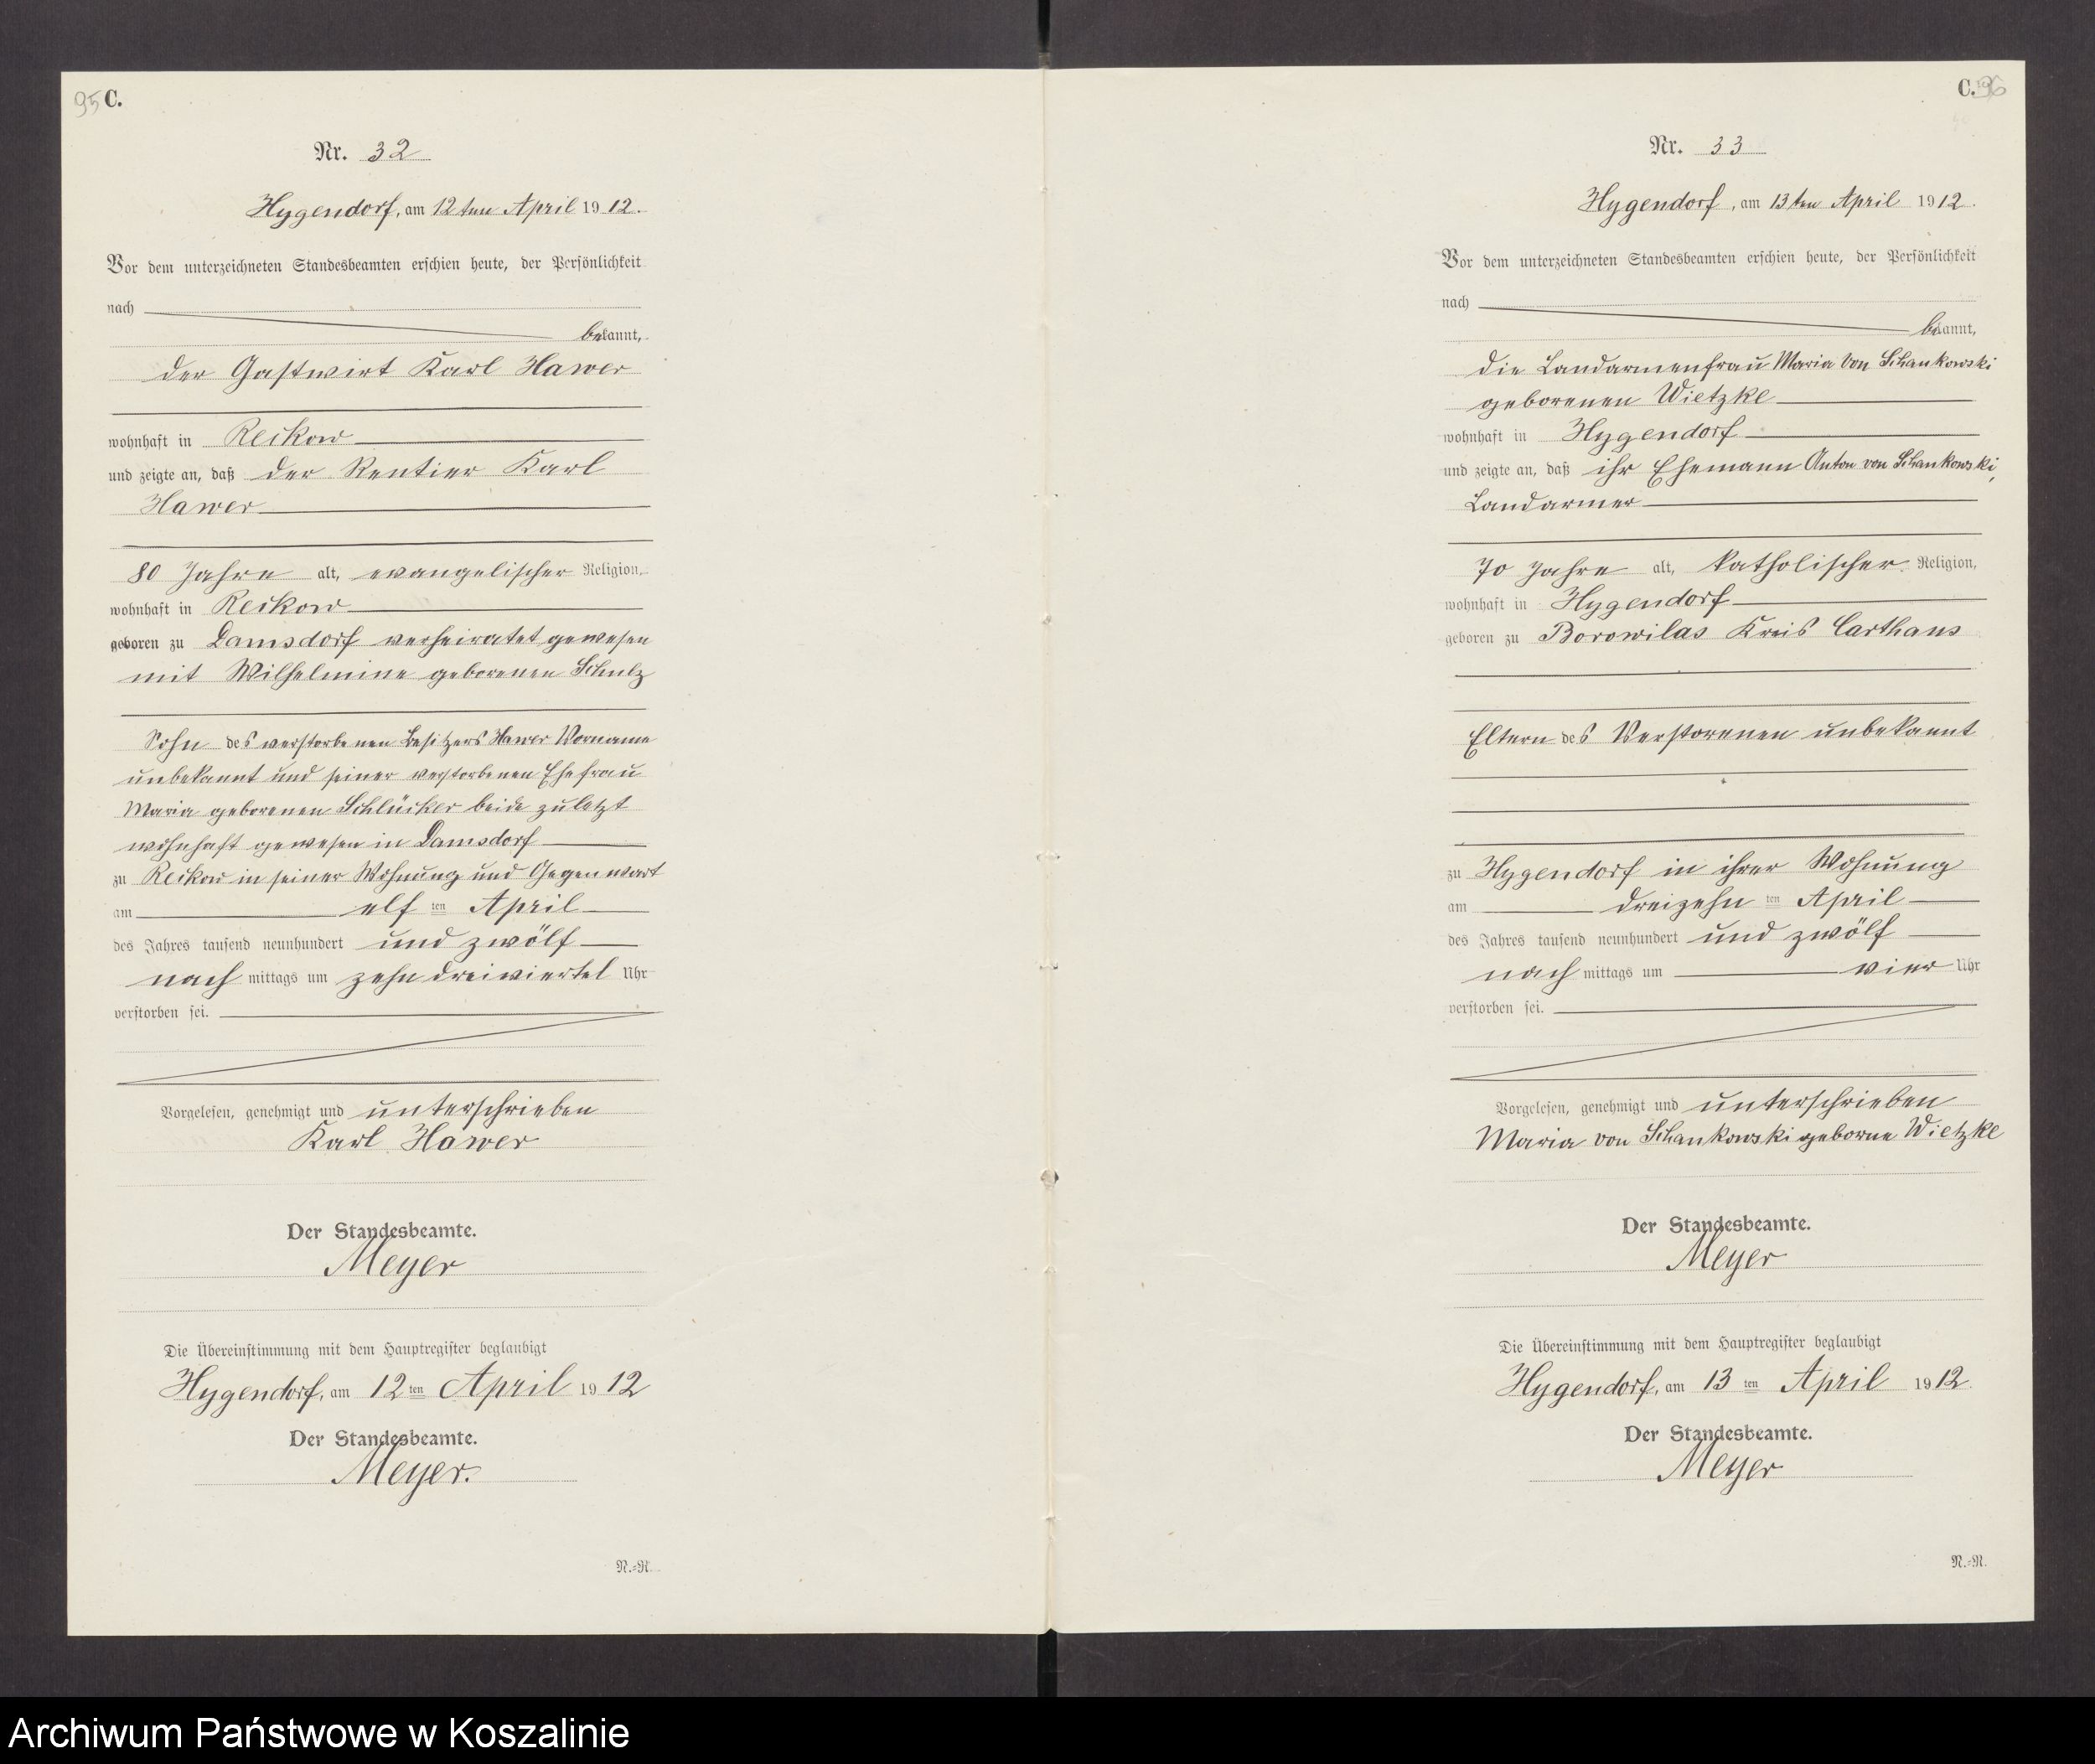 95 C.
Nr. 32
Hygendorf, am 12ten April 1912.
Vor dem unterzeichneten Standesbeamten erschien heute, der Persönlichkeit
nach
bekannt,
der Gastwirt Karl Hawer
wohnhaft in Reckow
und zeigte an, daß der Rentier Karl
Hawer
80 Jahre alt, evangelischer Religion,
wohnhaft in Reckow
geboren zu Damsdorf verheiratet gewesen
mit Wilhelmine geborenen Schulz
Sohn des verstorbenen Besitzers Hawer Vorname
unbekannt und seiner verstorbenen Ehefrau
Maria geborenen Schlücker beide zuletzt
wohnhaft gewesen in Damsdorf
zu Reckow in seiner Wohnung und Gegenwart
am elf ten April
des Jahres tausend neunhundert und zwölf
nach mittags um zehn dreiviertel Uhr
verstorben sei.
Vorgelesen, genehmigt und unterschrieben
Karl Hawer
Der Standesbeamte.
Meyer
Die Übereinstimmung mit dem Hauptregister beglaubigt
Hygendorf, am 12 ten April 1912
Der Standesbeamte.
Meyer.
N.-R.
C. 96
Nr. 33
Hygendorf, am 13ten April 1912.
Vor dem unterzeichneten Standesbeamten erschien heute, der Persönlichkeit
nach
bekannt,
die Landarmenfrau Maria von Schankowski
geborenen Wietzke
wohnhaft in Hygendorf
und zeigte an, daß ihr Ehemann Anton von Schankowski,
Landarmer
70 Jahre alt, katholischer Religion,
wohnhaft in Hygendorf
geboren zu Borowilas Kreis Carthaus
Eltern des Verstorenen unbekannt
zu Hygendorf in ihrer Wohnung
am dreizehn ten April
des Jahres tausend neunhundert und zwölf
nach mittags um vier Uhr
verstorben sei.
Vorgelesen, genehmigt und unterschrieben
Maria von Schankowski geborne Wietzke
Der Standesbeamte.
Meyer
Die Übereinstimmung mit dem Hauptregister beglaubigt
Hygendorf, am 13 ten April 1912.
Der Standesbeamte.
Meyer
N.-R.
Archiwum Państwowe w Koszalinie